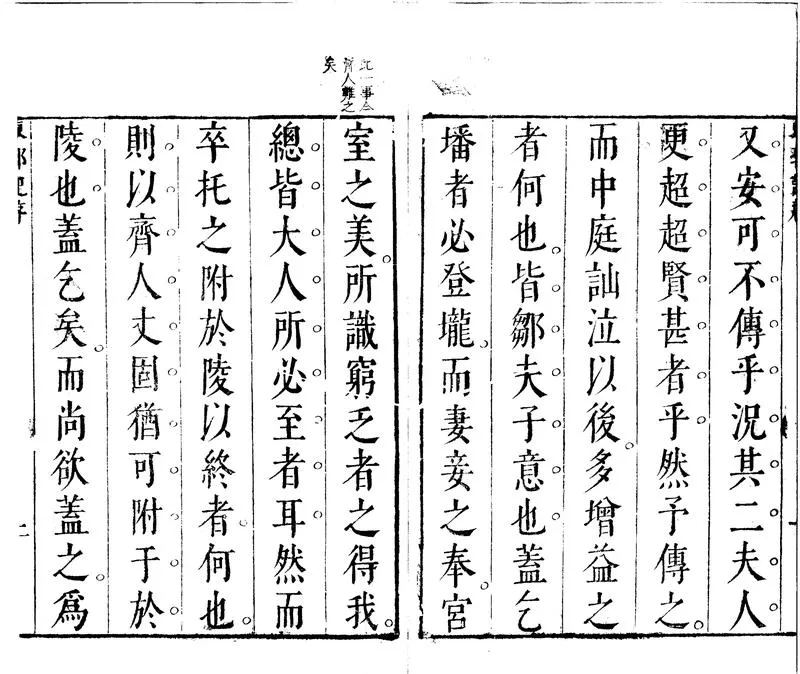 又安可不傳乎況其二夫人
更超超賢甚者乎然予傳之
而中庭訕泣以後多增益之
者何也皆鄒夫子意也蓋乞
墦者必登壠而妻妾之奉宮
此一事今
齊人難之
矣
室之美所識窮乏者之得我
總皆大人所必至者耳然而
卒托之附於陵以終者何也
則以齊人丈固猶可附于於
陵也蓋乞矣而尚欲蓋之爲
二